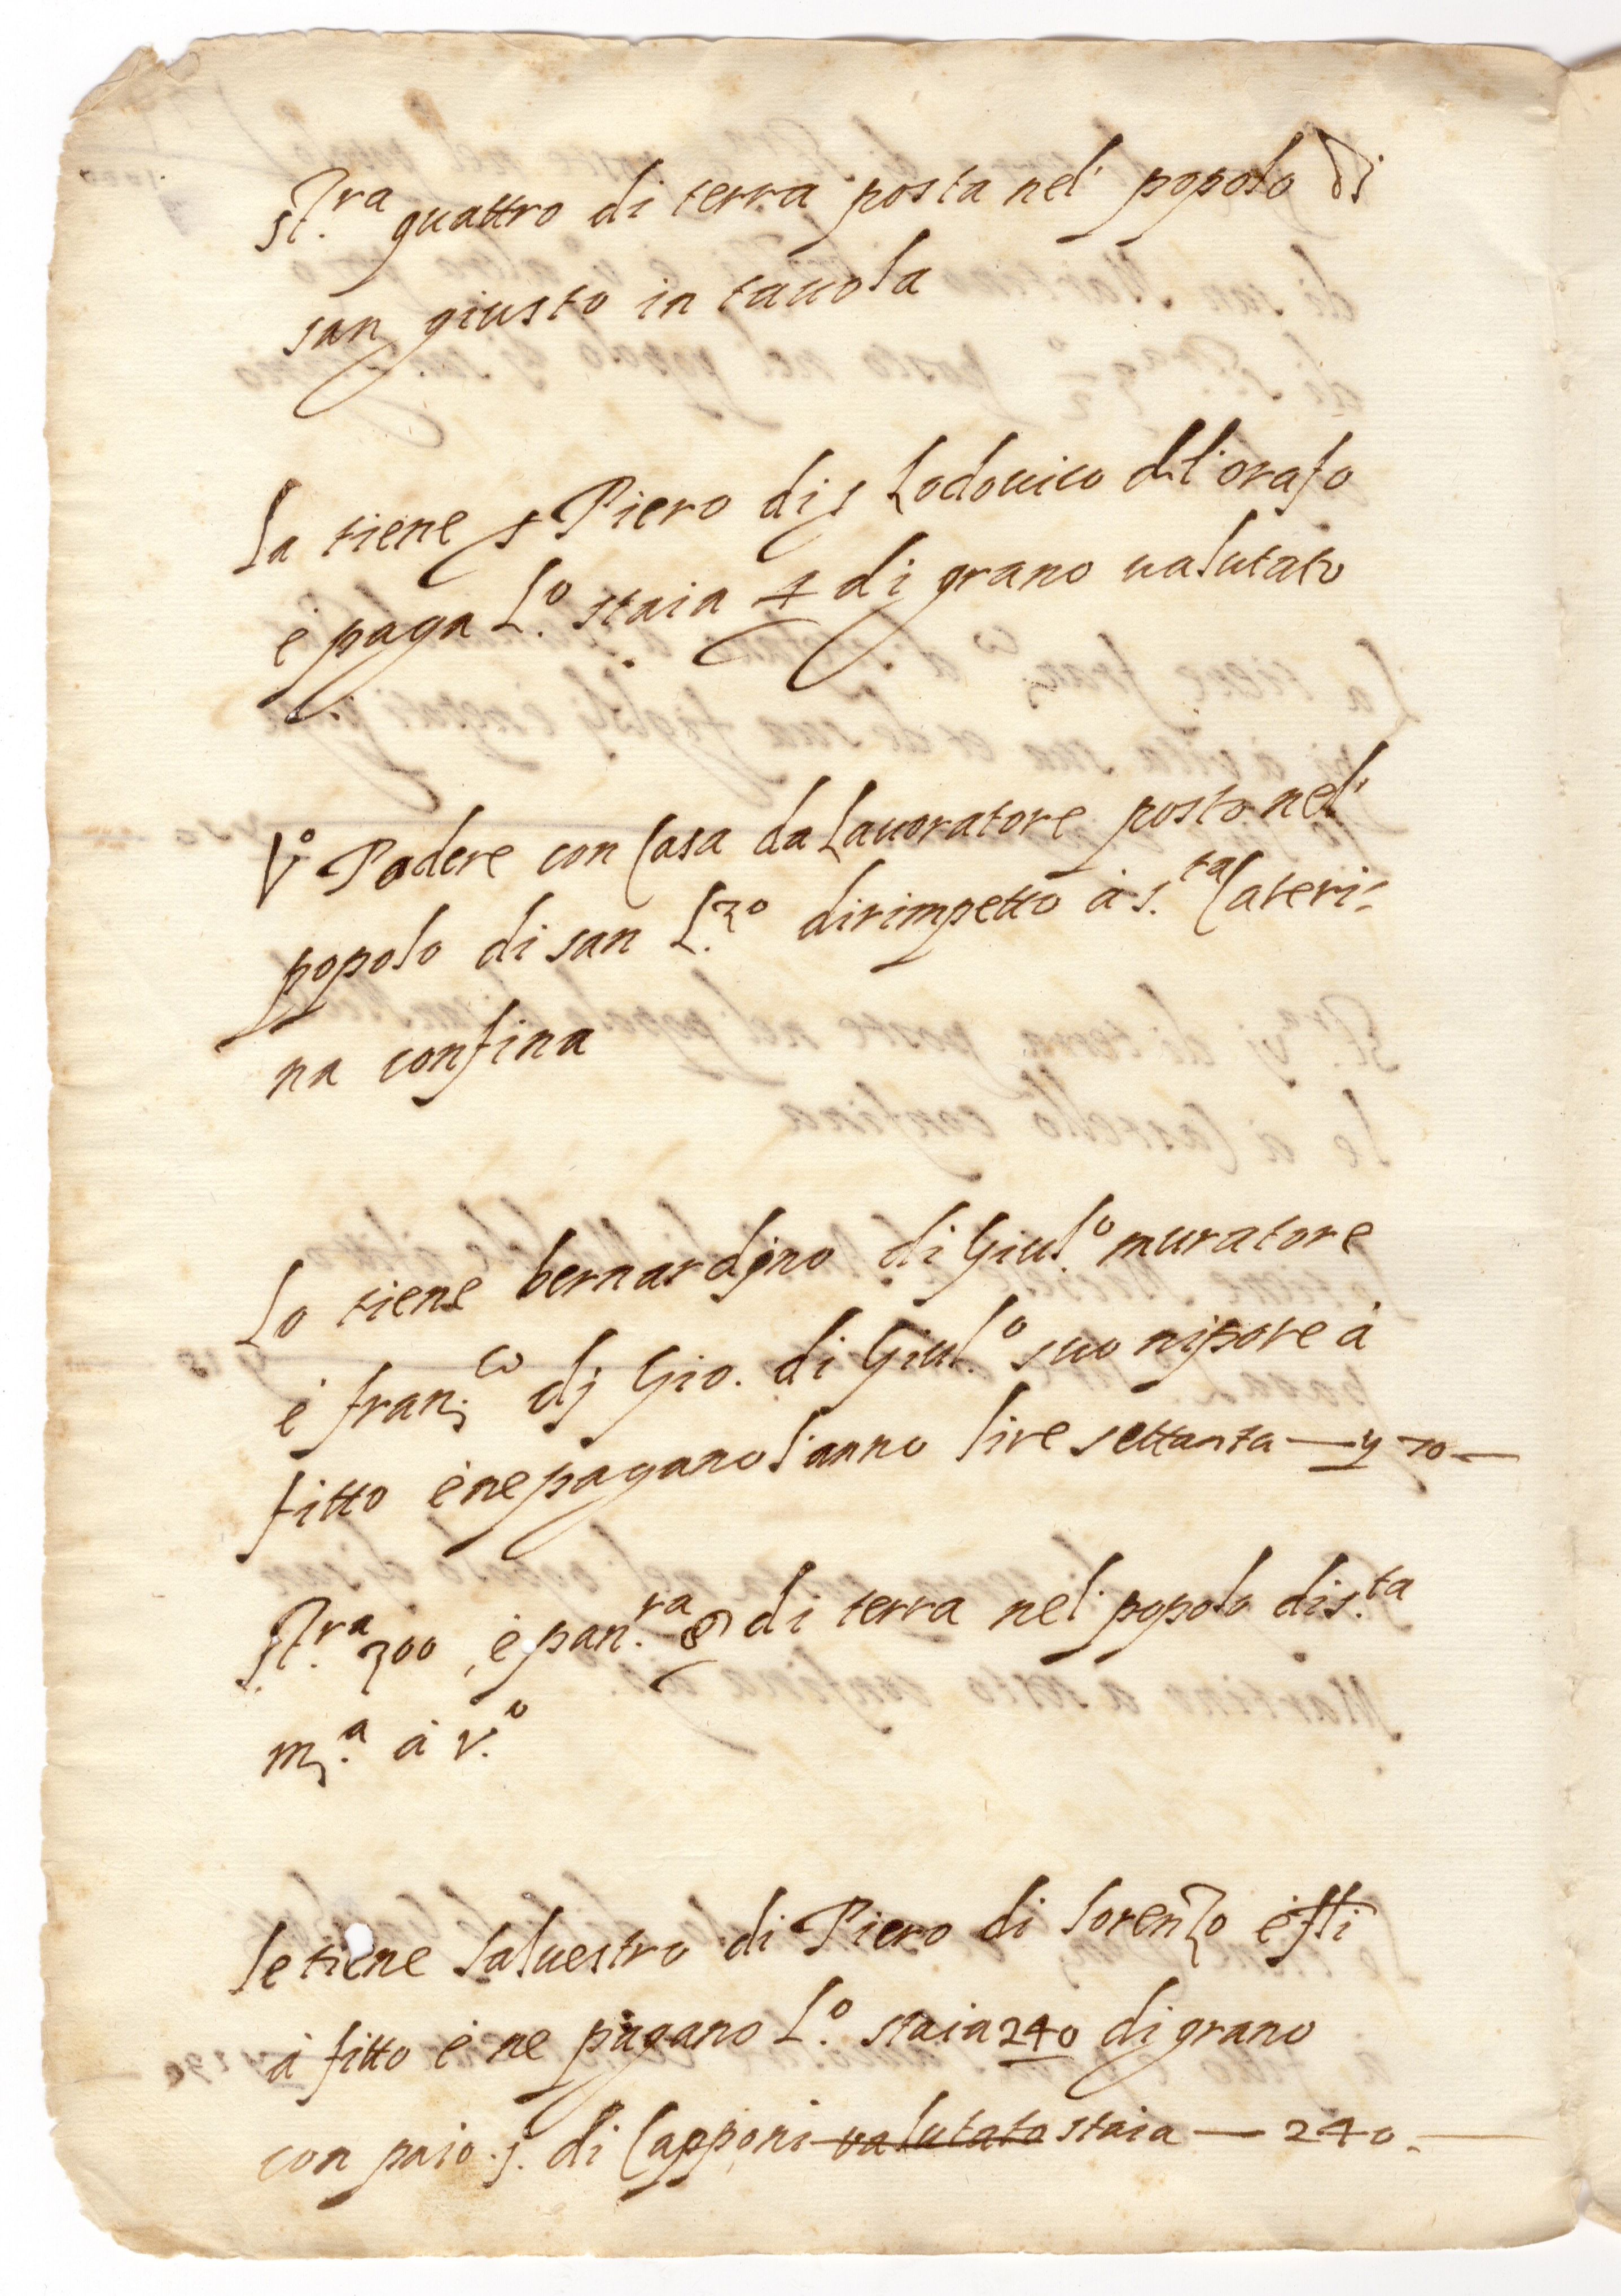 st.ra quattro di terra posta nel' popolo di
san giusto in tauola
la tiene s Piero di s Lodouico del'orafo
è paga L.o staia 4 di grano ualutato
Vo Podere con Casa da Lauoratore posto nel'
popolo di san L.zo dirimpetto à s.ta Cateri=
na confina
Lo tiene bernardino di Giul.o muratore
è fran.co di Gio. di Giul.o suo nipote à
fitto è ne pagano l'anno lire settanta — 70 —
St.ra 300, è pan.ra 8 di terra nel' popolo di s.ta
m.a à V.o
le tiene saluestro di Piero di lorenzo è flli
à fitto è ne pagano L.o staia 240 di grano
con paio .j. di Capponi ualutato staia — 240. —